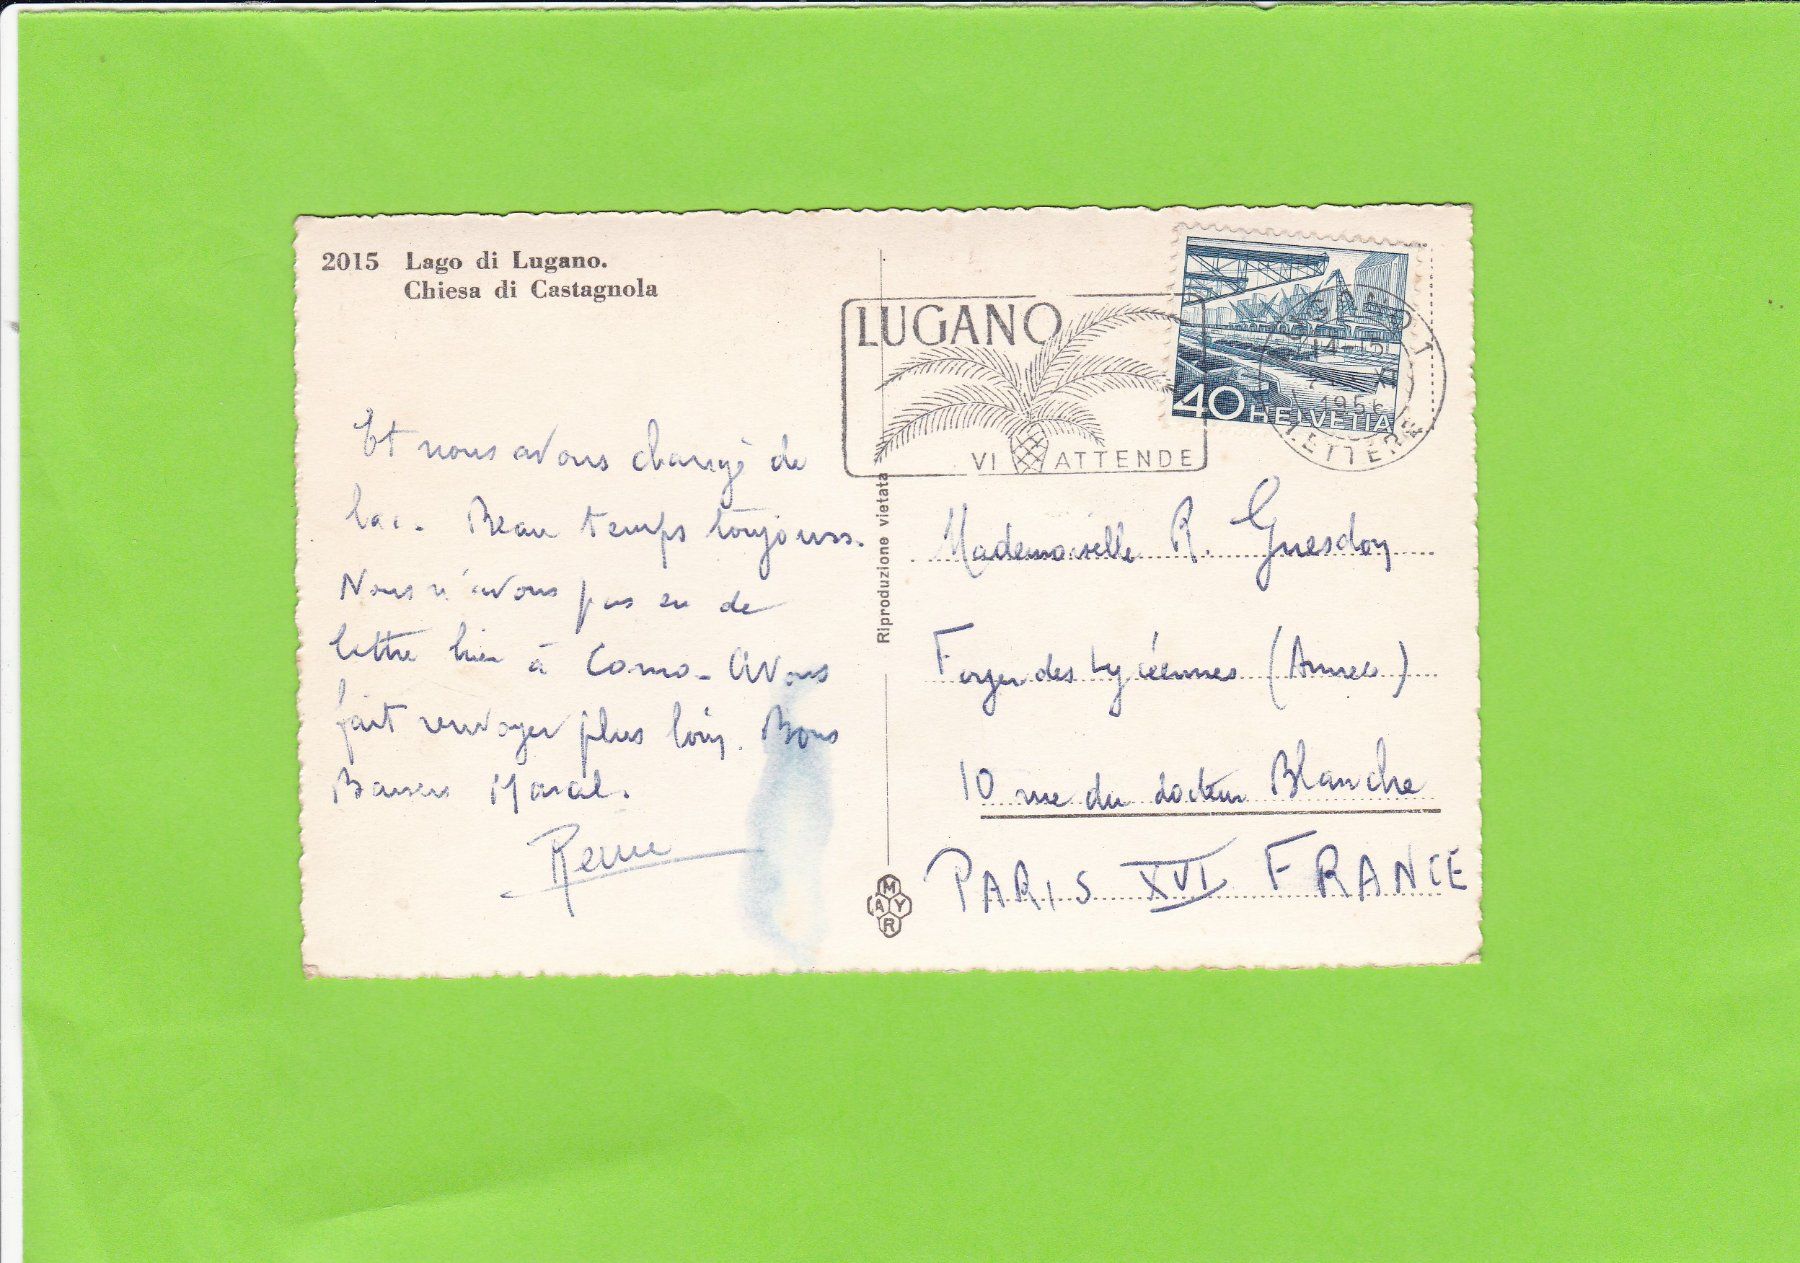 2015 Lago di Lugano.
Chiesa di Castagnola
Et nous avons changé de
lac. Beau temps toujours.
Nous n'avons pas eu de
lettre hier à Como. Avons
fait renvoyer plus loin. Bons
Baisers
LUGANO
VI ATTENDE
40 HELVETIA
14-15
1956
LETTERE
Riproduzione vietata
Mademoiselle R. Guesdon
Foyer des Lycéennes (Annexe)
10 rue du docteur Blanche
PARIS XVI FRANCE
MAYR